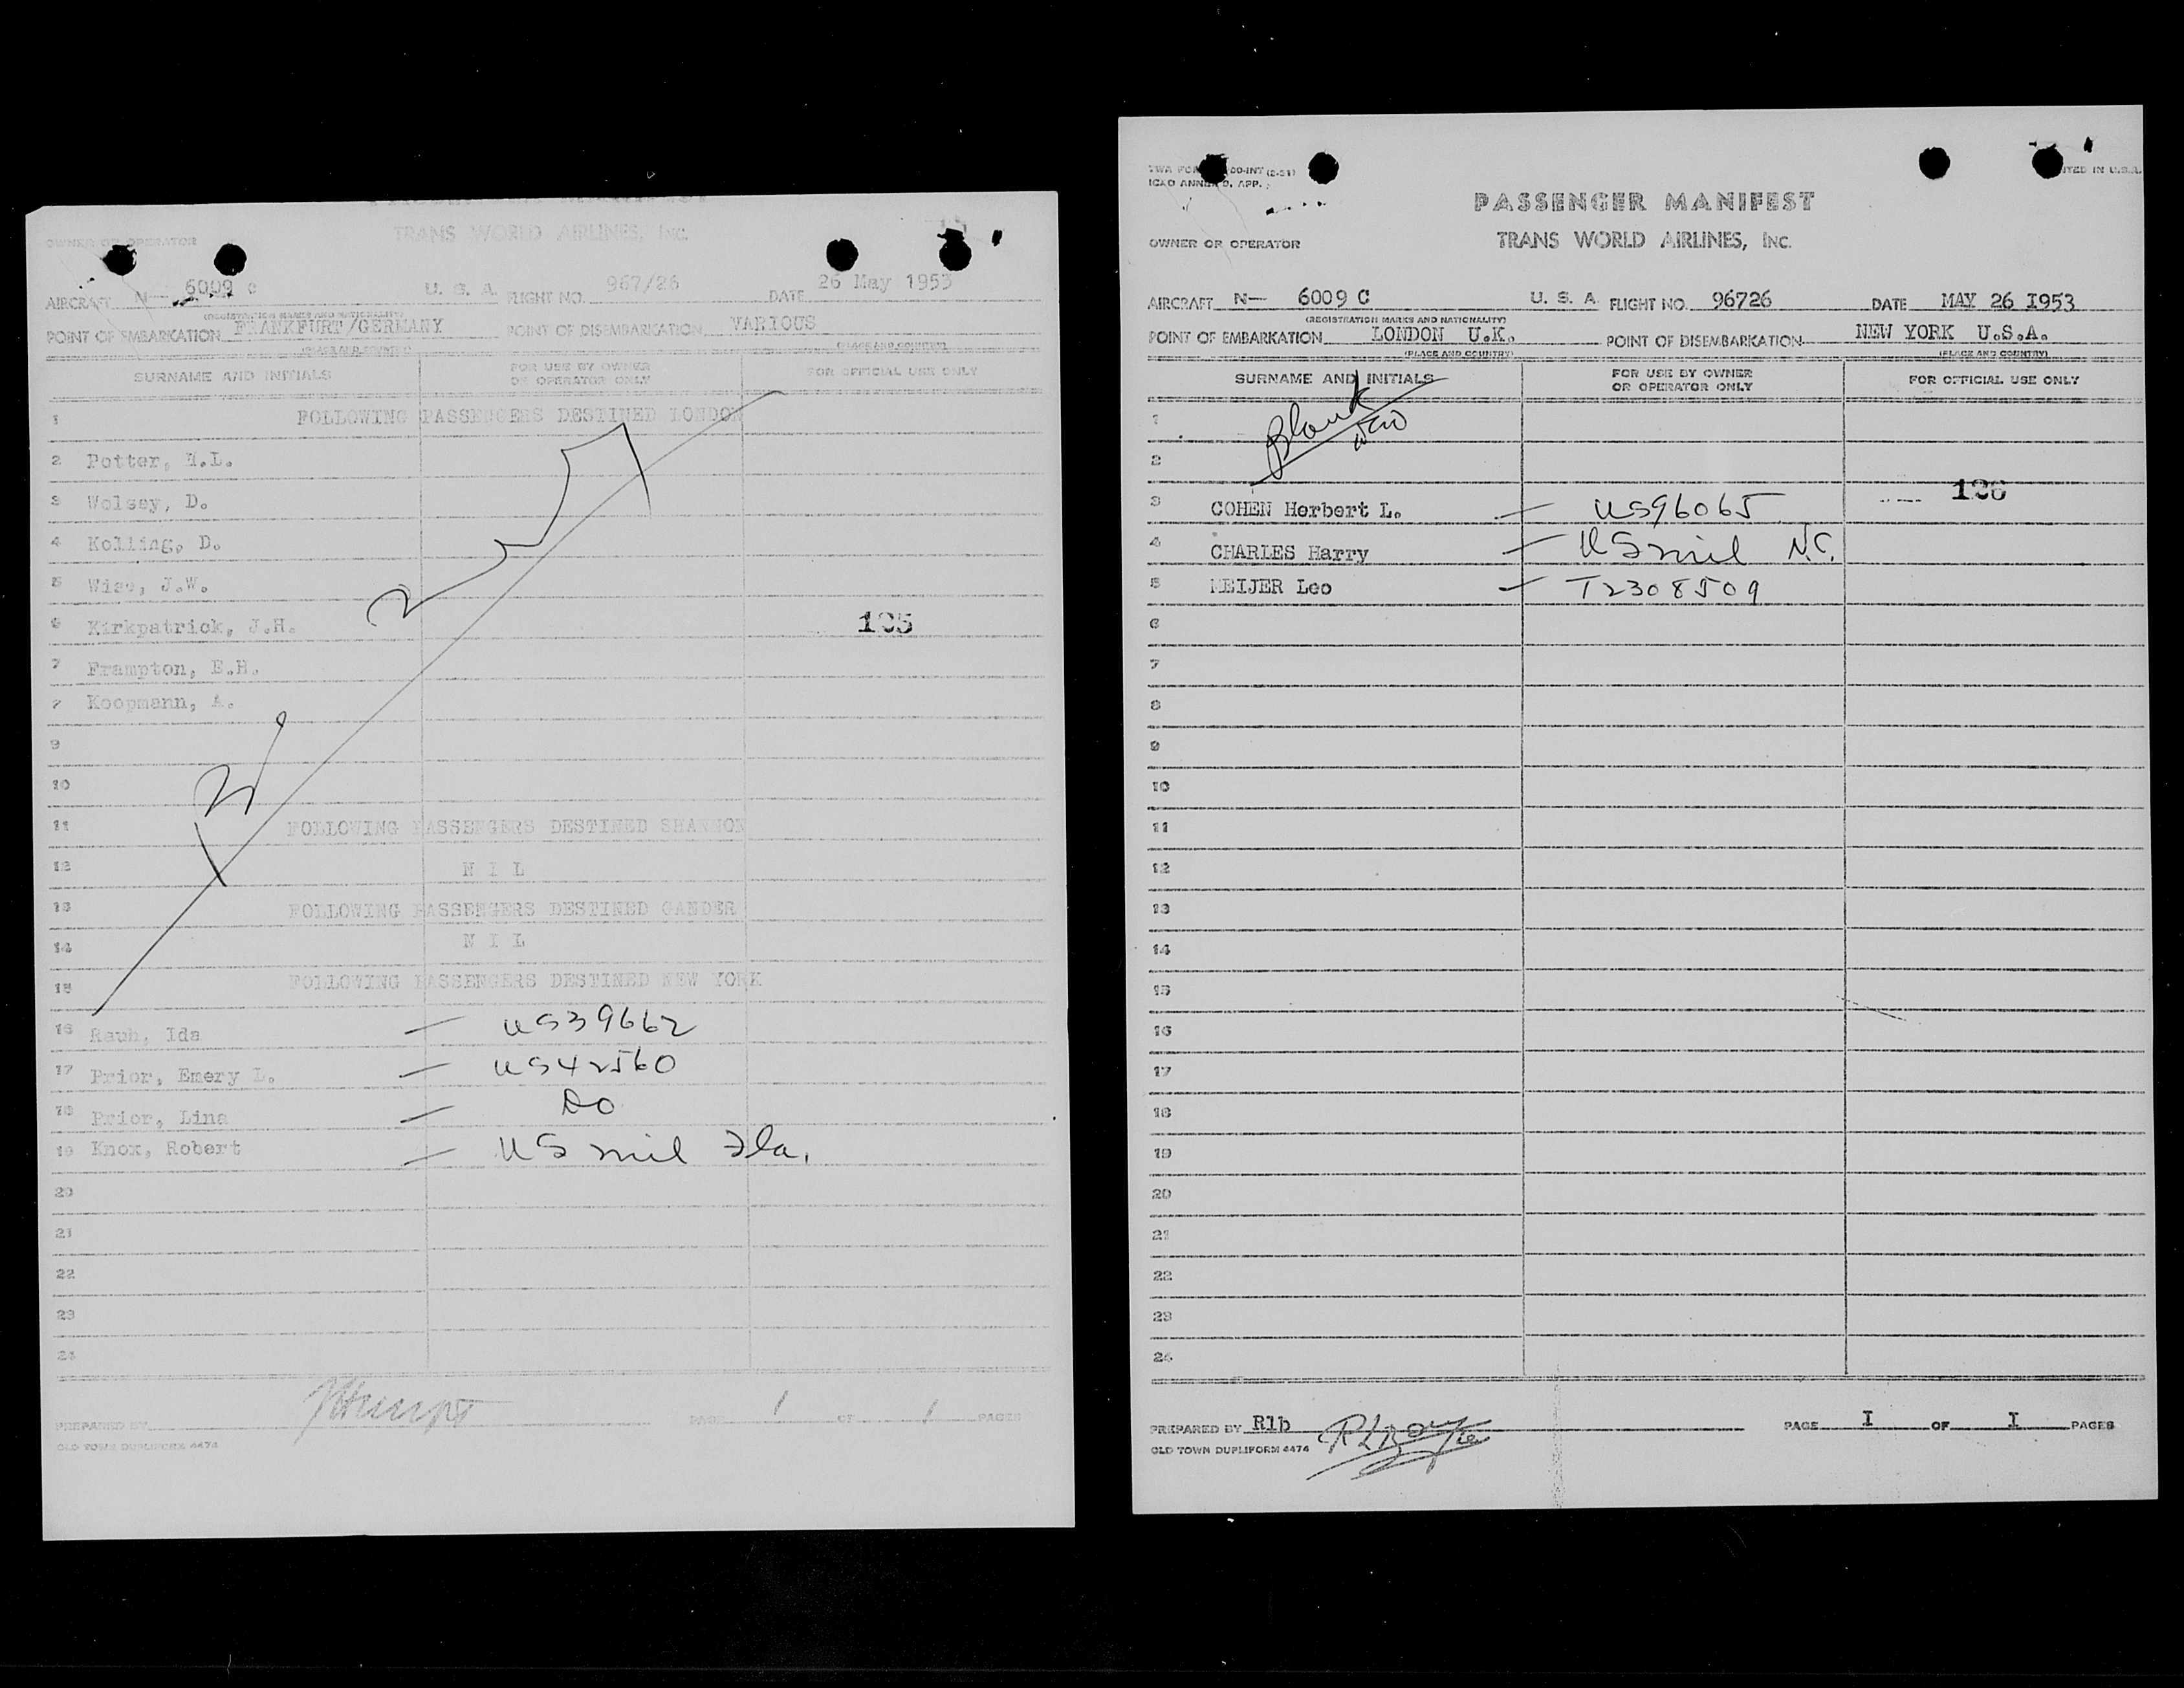 TRANS WORLD AIRLINES, INC.
OWNER OR OPERATOR
AIRCRAFT N— 6009 C U. S. A. FLIGHT NO. 967/26 DATE 26 May 1953
(REGISTRATION MARKS AND NATIONALITY)
POINT OF EMBARKATION FRANKFURT/GERMANY POINT OF DISEMBARKATION VARIOUS
(PLACE AND COUNTRY) (PLACE AND COUNTRY)
SURNAME AND INITIALS FOR USE BY OWNER OR OPERATOR ONLY FOR OFFICIAL USE ONLY
1 FOLLOWING PASSENGERS DESTINED LONDON
2 Potter, H.L.
3 Wolsey, D.
4 Kolling, D.
5 Wise, J.W.
6 Kirkpatrick, J.H. 125
7 Frampton, E.H.
7 Koopmann, A.
9
10
11 FOLLOWING PASSENGERS DESTINED SHANNON
12 N I L
13 FOLLOWING PASSENGERS DESTINED GANDER
14 N I L
15 FOLLOWING PASSENGERS DESTINED NEW YORK
16 Rauh, Ida — US39662
17 Prior, Emery L. — US42560
18 Prior, Lina — DO
19 Knox, Robert — US mil Fla.
20
21
22
23
24
PREPARED BY PAGE 1 OF 1 PAGES
OLD TOWN DUPLIFORM 4474
TWA FOR 00-INT (2-51)
ICAO ANNEX 9, APP.
PASSENGER MANIFEST
TRANS WORLD AIRLINES, INC.
OWNER OR OPERATOR
AIRCRAFT N— 6009 C U. S. A. FLIGHT NO. 96726 DATE MAY 26 I953
(REGISTRATION MARKS AND NATIONALITY)
POINT OF EMBARKATION LONDON U.K. POINT OF DISEMBARKATION NEW YORK U.S.A.
(PLACE AND COUNTRY) (PLACE AND COUNTRY)
SURNAME AND INITIALS FOR USE BY OWNER OR OPERATOR ONLY FOR OFFICIAL USE ONLY
1 Blank
2
3 COHEN Herbert L. — US96065 126
4 CHARLES Harry — US mil N.C.
5 MEIJER Leo — T2308509
6
7
8
9
10
11
12
13
14
15
16
17
18
19
20
21
22
23
24
PREPARED BY Rlb PAGE I OF I PAGES
OLD TOWN DUPLIFORM 4474